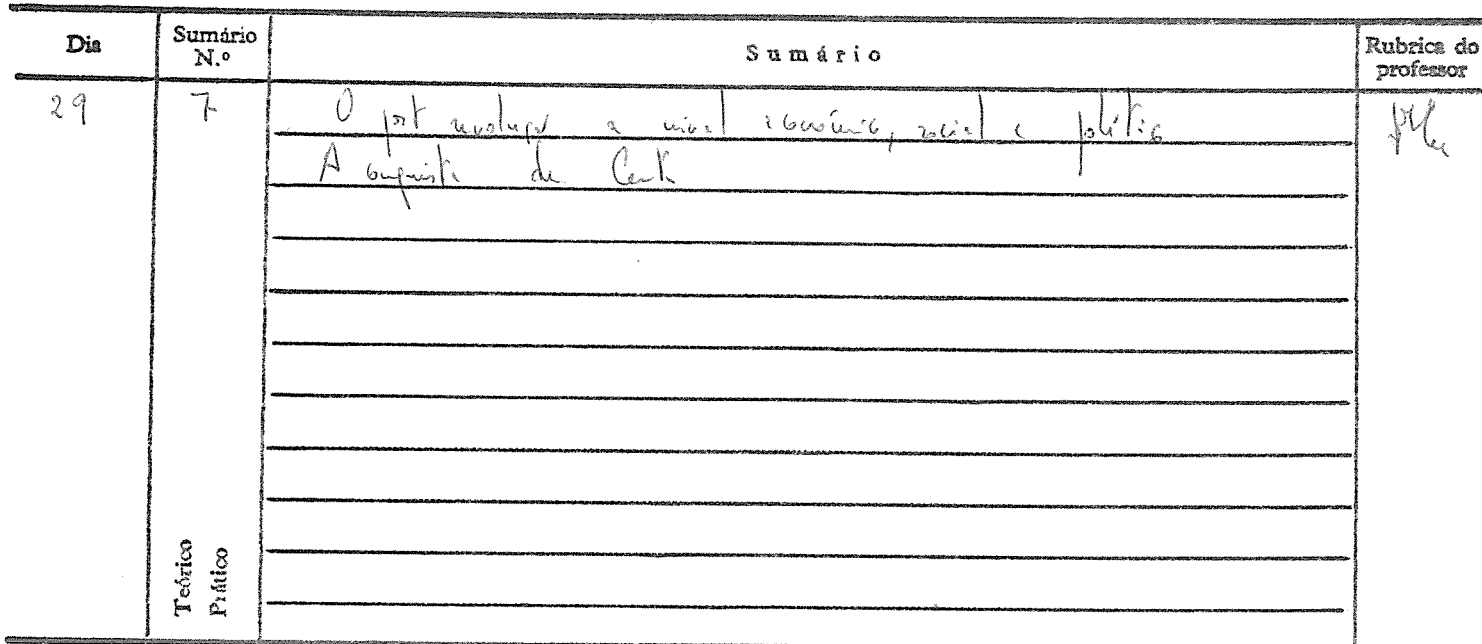 Dia
Sumário N.º
Sumário
Rubrica do professor
29
7
O post revolução a nível económico, social e político
A conquista de Ceuta
Teórico
Prático